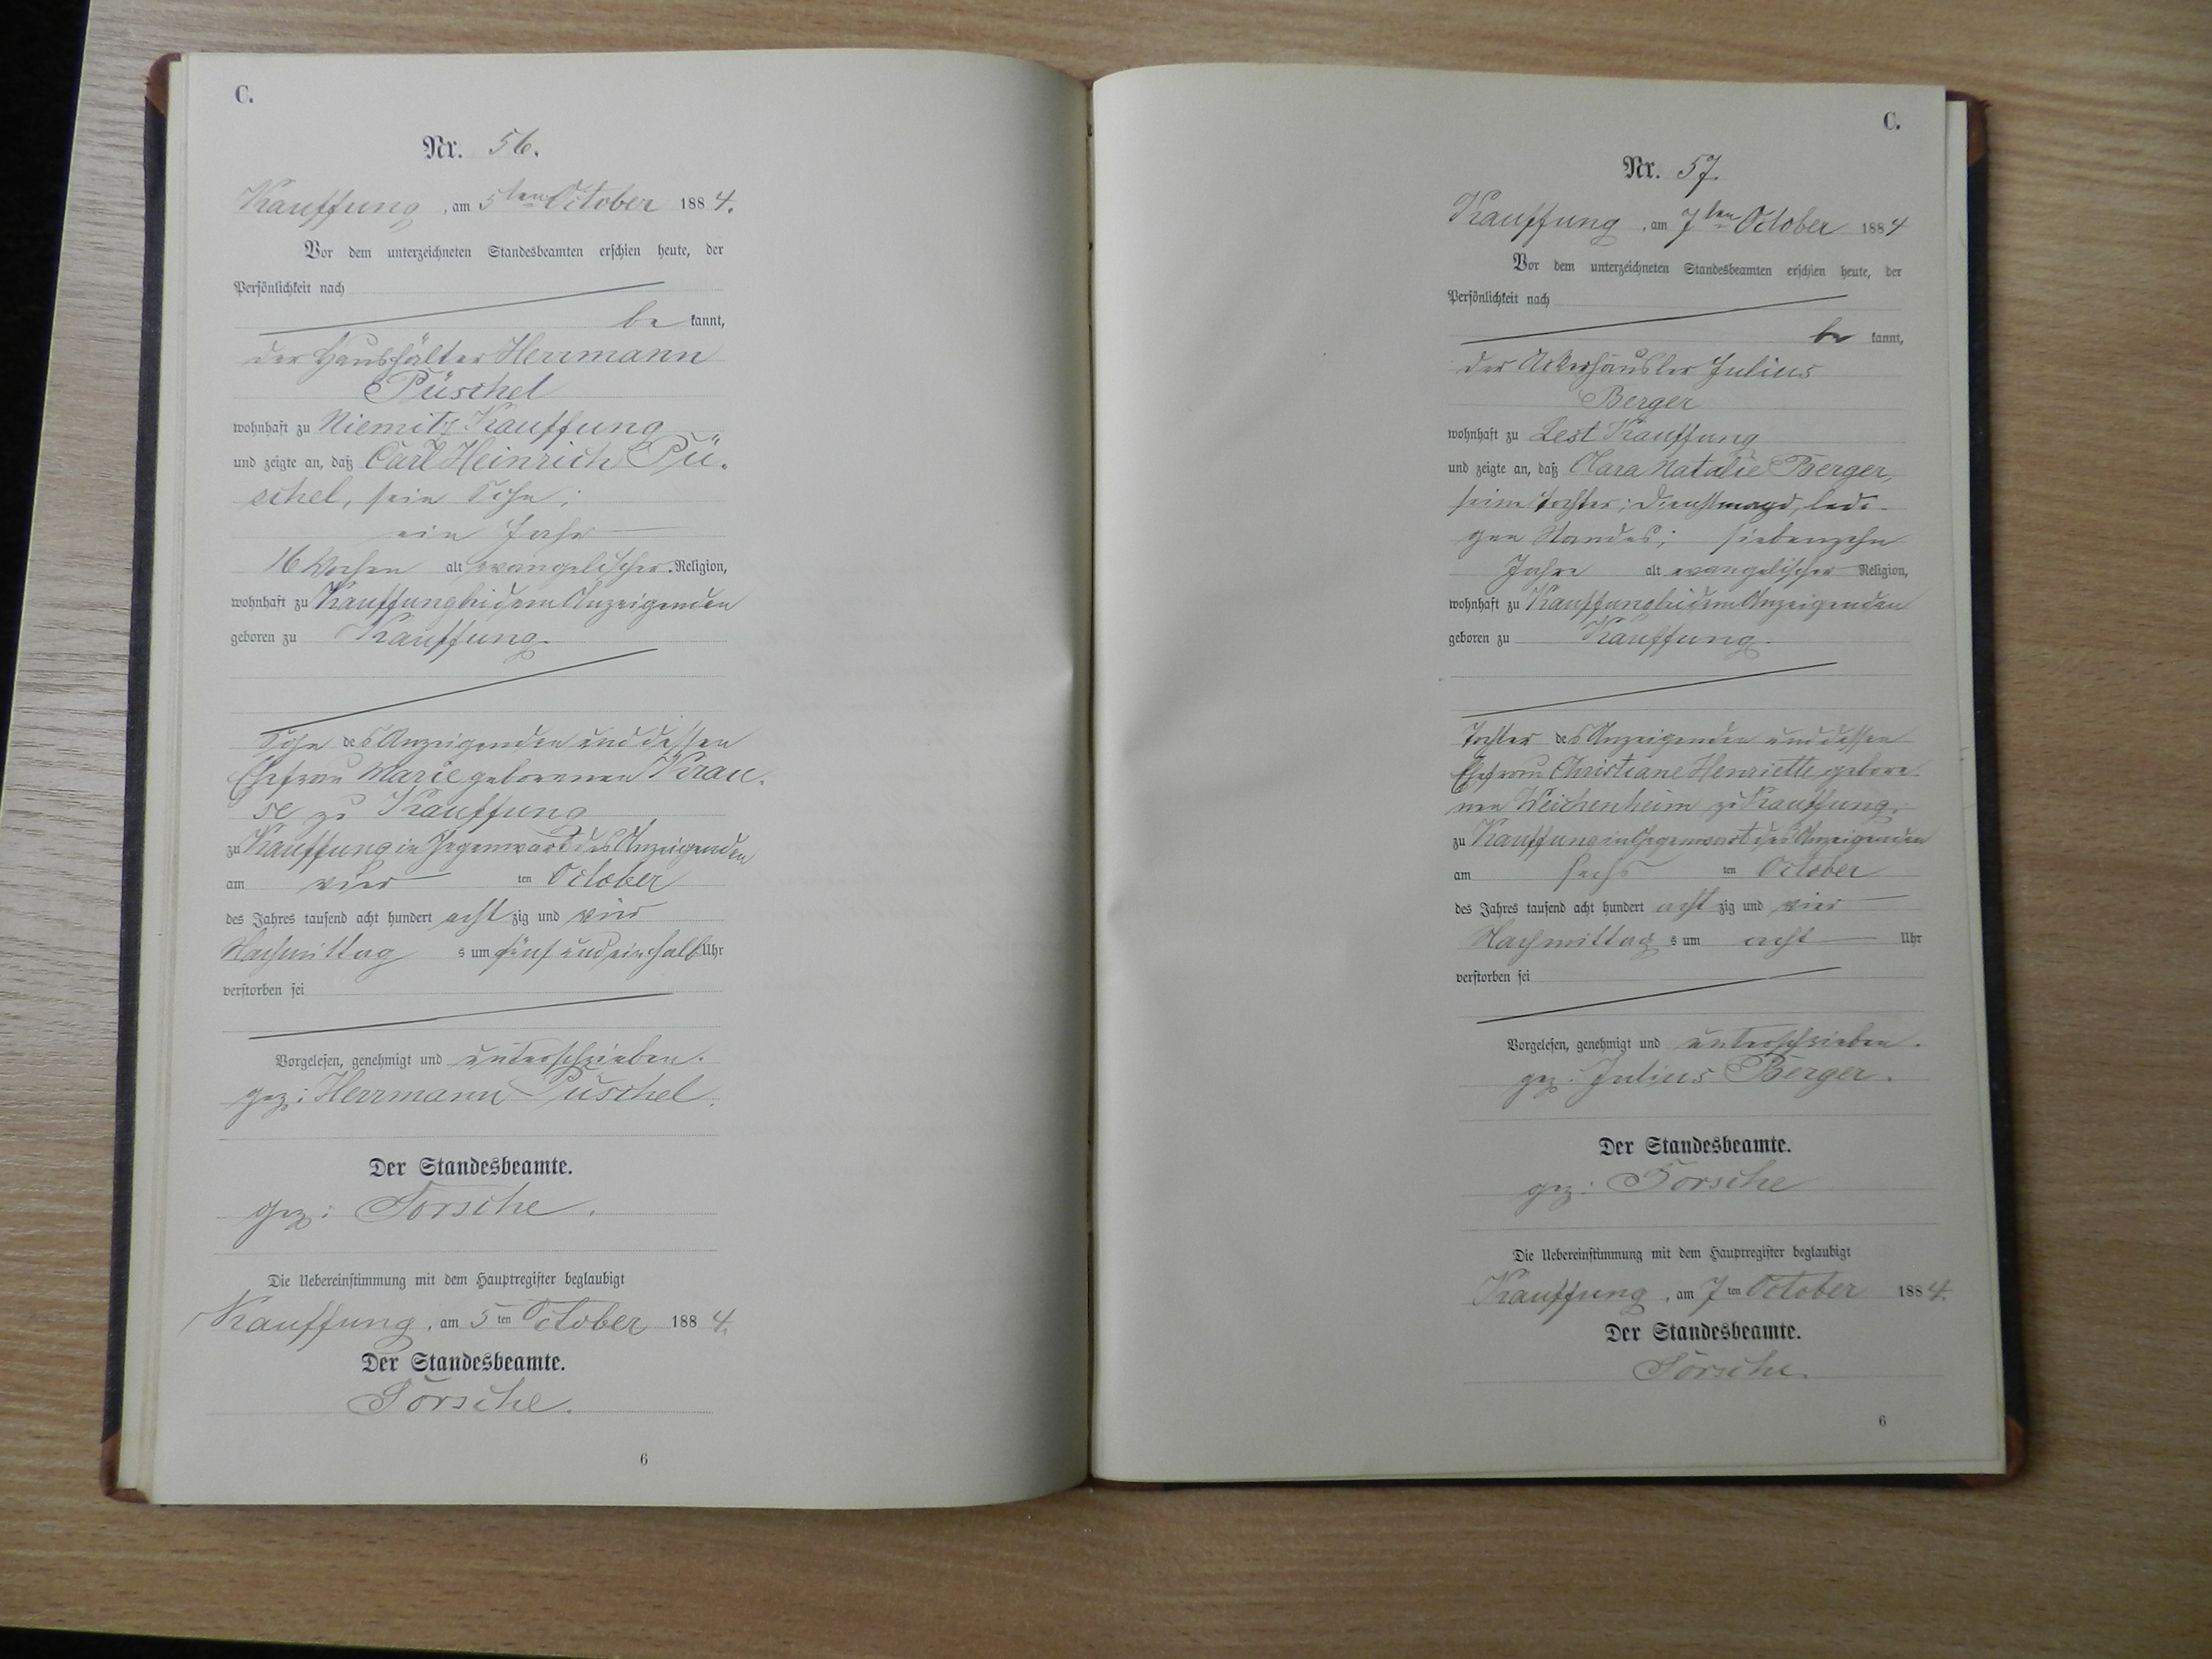 C.
Nr. 56.
Kauffung, am 5ten October 1884.
Vor dem unterzeichneten Standesbeamten erschien heute, der
Persönlichkeit nach
be kannt,
der Haushälter Herrmann
Püschel
wohnhaft zu Niemitz Kauffung
und zeigte an, daß Carl Heinrich Pü-
schel, sein Sohn;
ein Jahr
16 Wochen alt evangelischer Religion,
wohnhaft zu Kauffung bei dem Anzeigenden
geboren zu Kauffung.
Sohn des Anzeigenden und dessen
Ehefrau Marie geborenen Krau-
se zu Kauffung
zu Kauffung in Gegenwart des Anzeigenden
am vier ten October
des Jahres tausend acht hundert acht zig und vier
Nachmittag s um fünf und ein halb Uhr
verstorben sei
Vorgelesen, genehmigt und unterschrieben.
gez: Herrmann Püschel.
Der Standesbeamte.
gez: Torsche.
Die Uebereinstimmung mit dem Hauptregister beglaubigt
Kauffung, am 5ten October 1884.
Der Standesbeamte.
Torsche.
6
C.
Nr. 57.
Kauffung, am 7ten October 1884
Vor dem unterzeichneten Standesbeamten erschien heute, der
Persönlichkeit nach
be kannt,
der Ackerhäusler Julius
Berger
wohnhaft zu Lest Kauffung
und zeigte an, daß Clara Natalie Berger,
seine Tochter; Dienstmagd, ledi-
gen Standes; siebenzehn
Jahre alt evangelischer Religion,
wohnhaft zu Kauffung bei dem Anzeigenden
geboren zu Kauffung.
Tochter des Anzeigenden und dessen
Ehefrau Christiane Henriette gebore-
nen Weichenheim zu Kauffung.
zu Kauffung in Gegenwart des Anzeigenden
am sechs ten October
des Jahres tausend acht hundert acht zig und vier
Nachmittag s um acht Uhr
verstorben sei
Vorgelesen, genehmigt und unterschrieben.
gez: Julius Berger.
Der Standesbeamte.
gez: Torsche
Die Uebereinstimmung mit dem Hauptregister beglaubigt
Kauffung, am 7ten October 1884.
Der Standesbeamte.
Torsche.
6